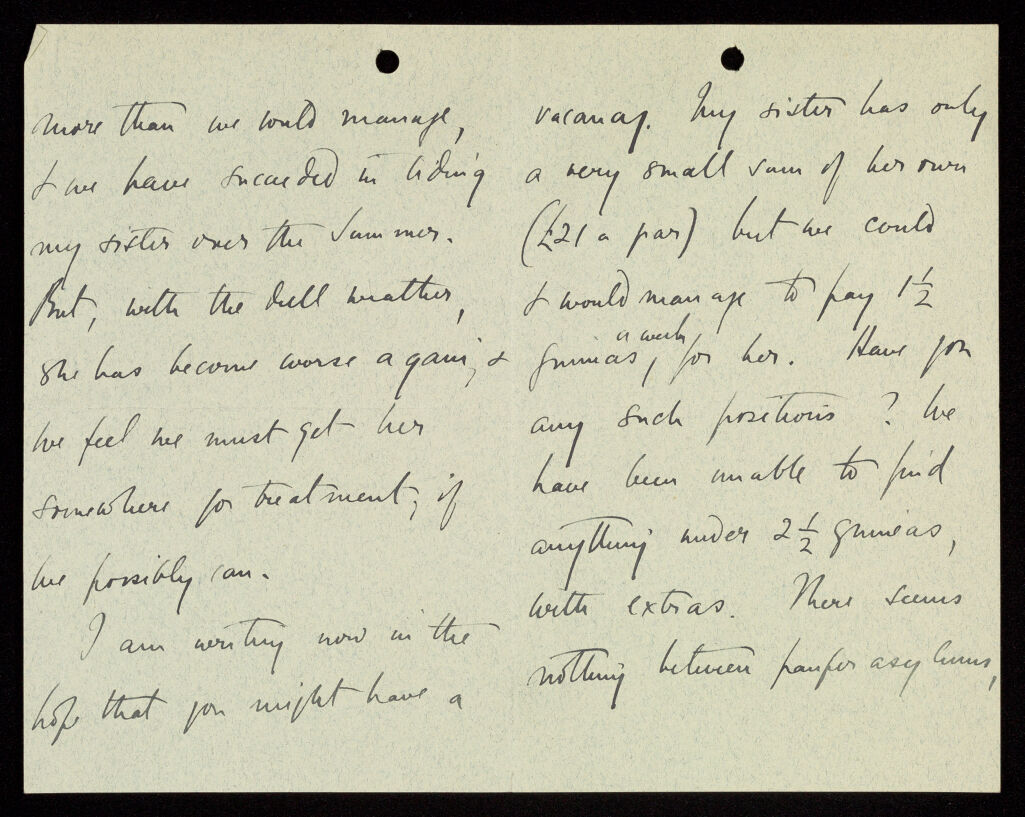 more than we could manage,
& we have succeeded in tiding
my sister over the Summer.
But, with the dull weather,
she has become worse again, &
we feel we must get her
somewhere for treatment, if
we possibly can.
I am writing now in the
hope that you might have a
vacancy. My sister has only
a very small sum of her own
(£21 a year) but we could
& would manage to pay 1½
a week
guineas, for her. Have you
any such positions? We
have been unable to find
anything under 2½ guineas,
with extras. There seems
nothing between pauper asylums,